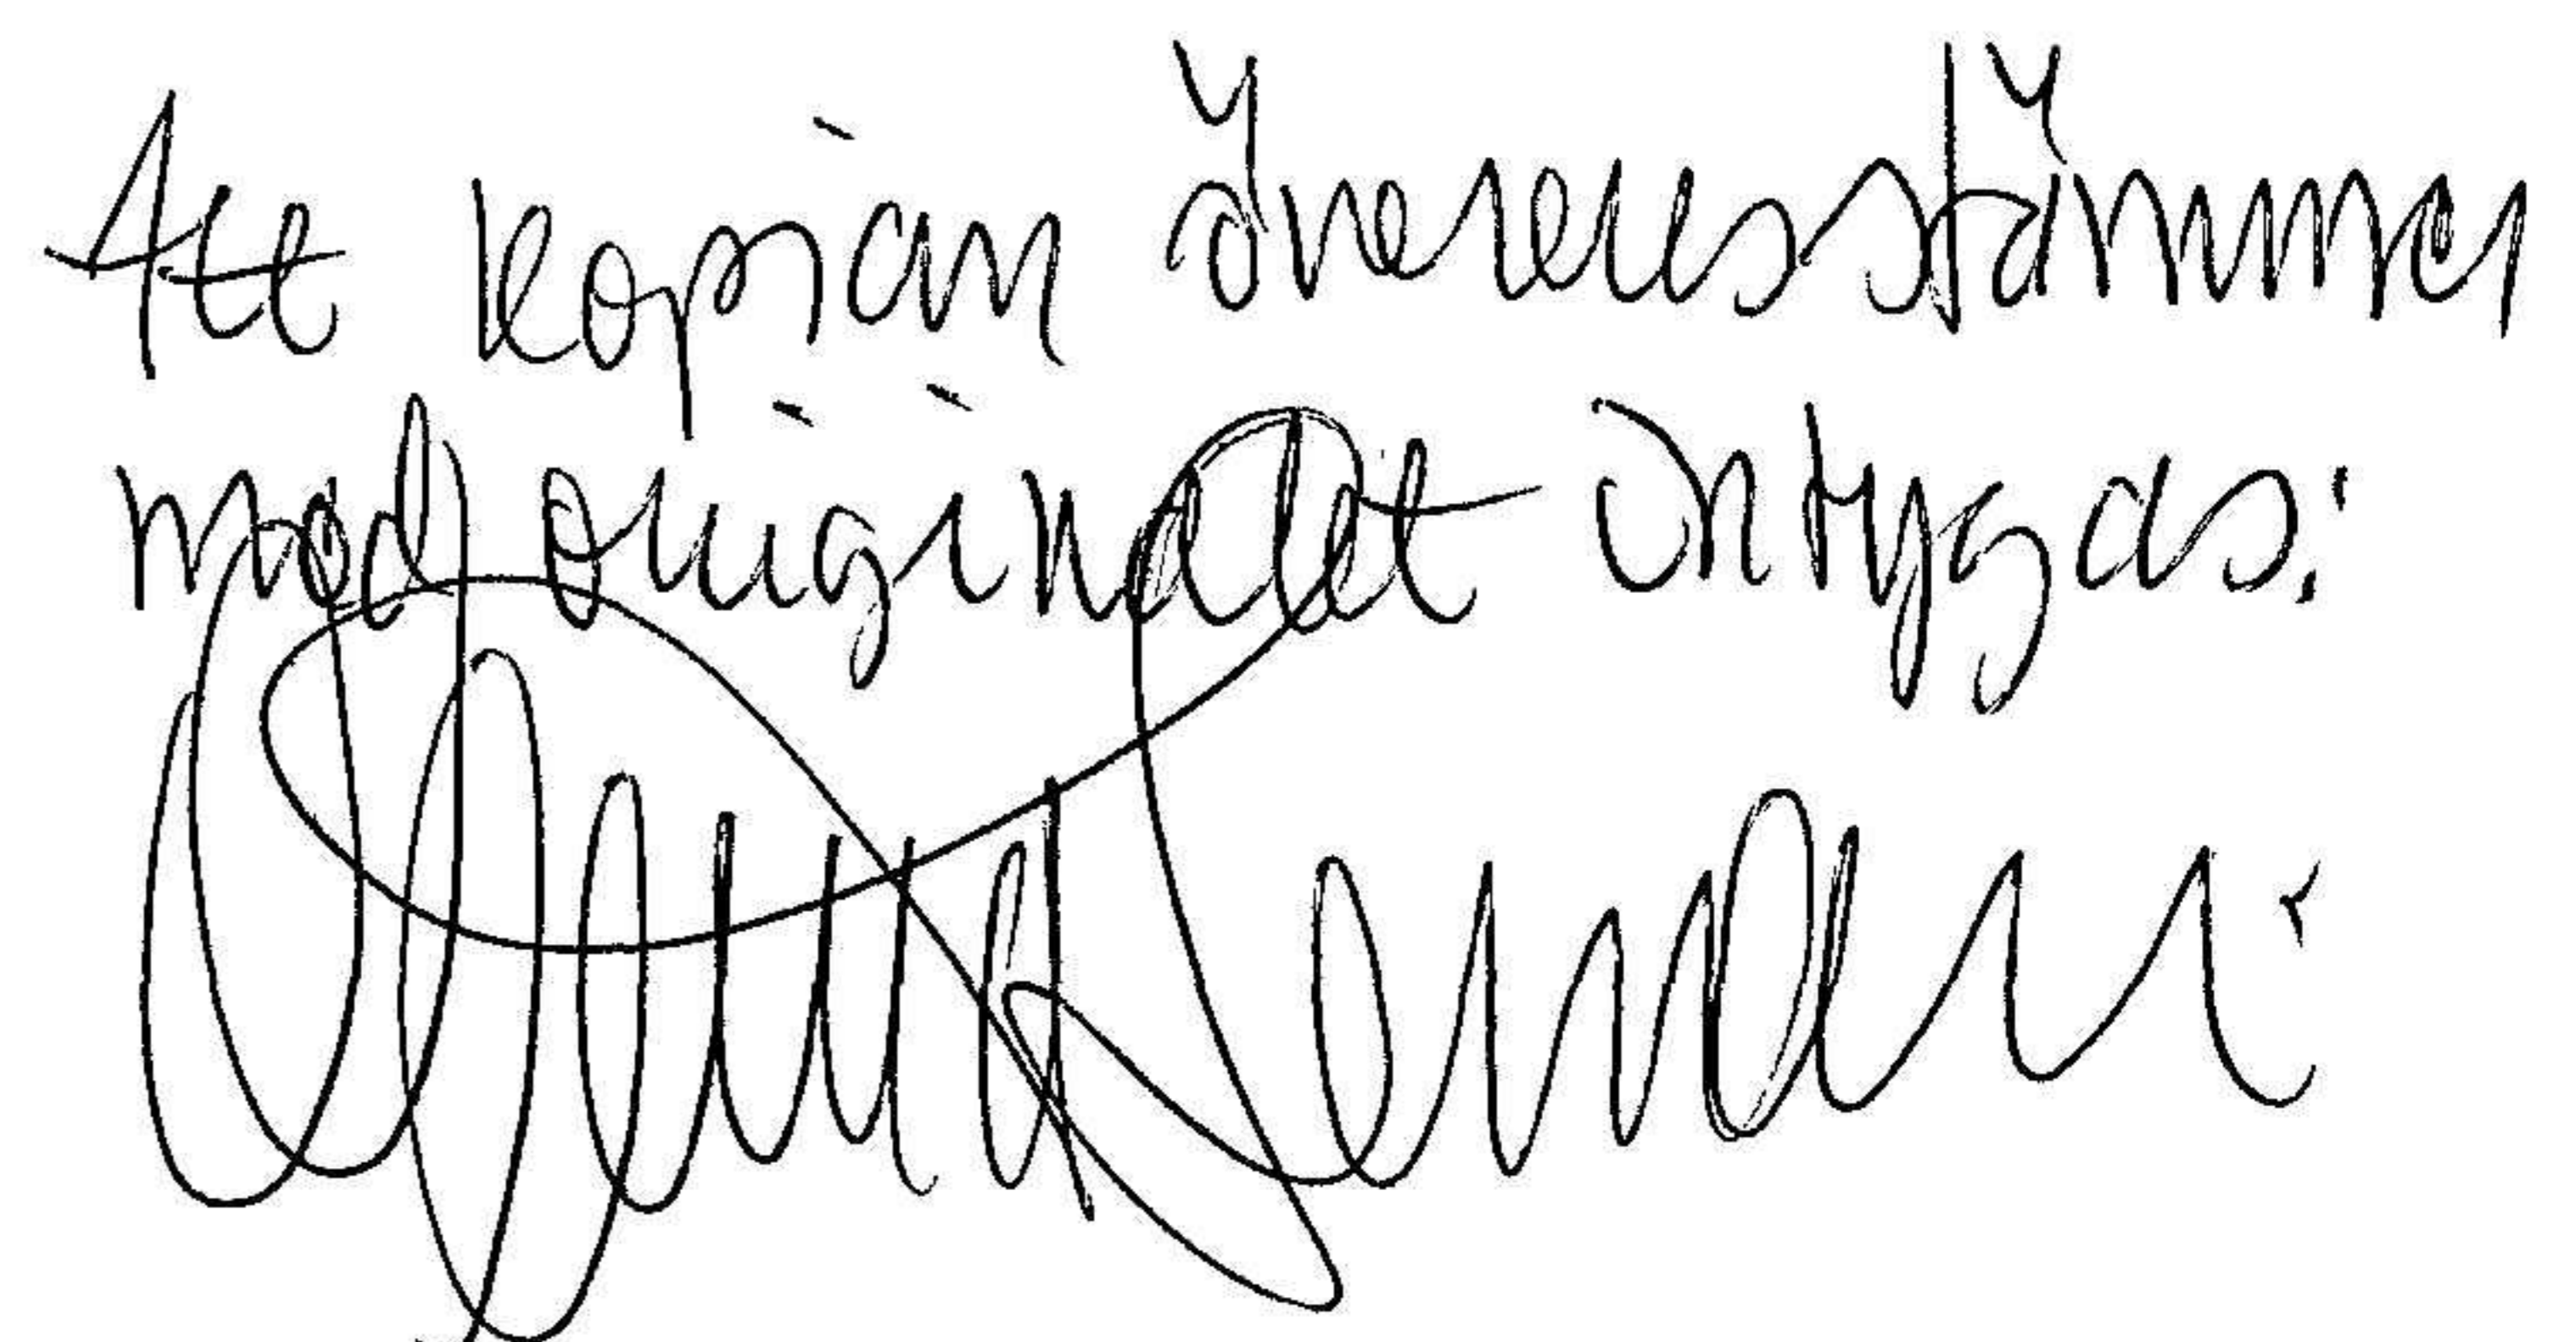 Att kopian överensstämmer
med originalet intygas: